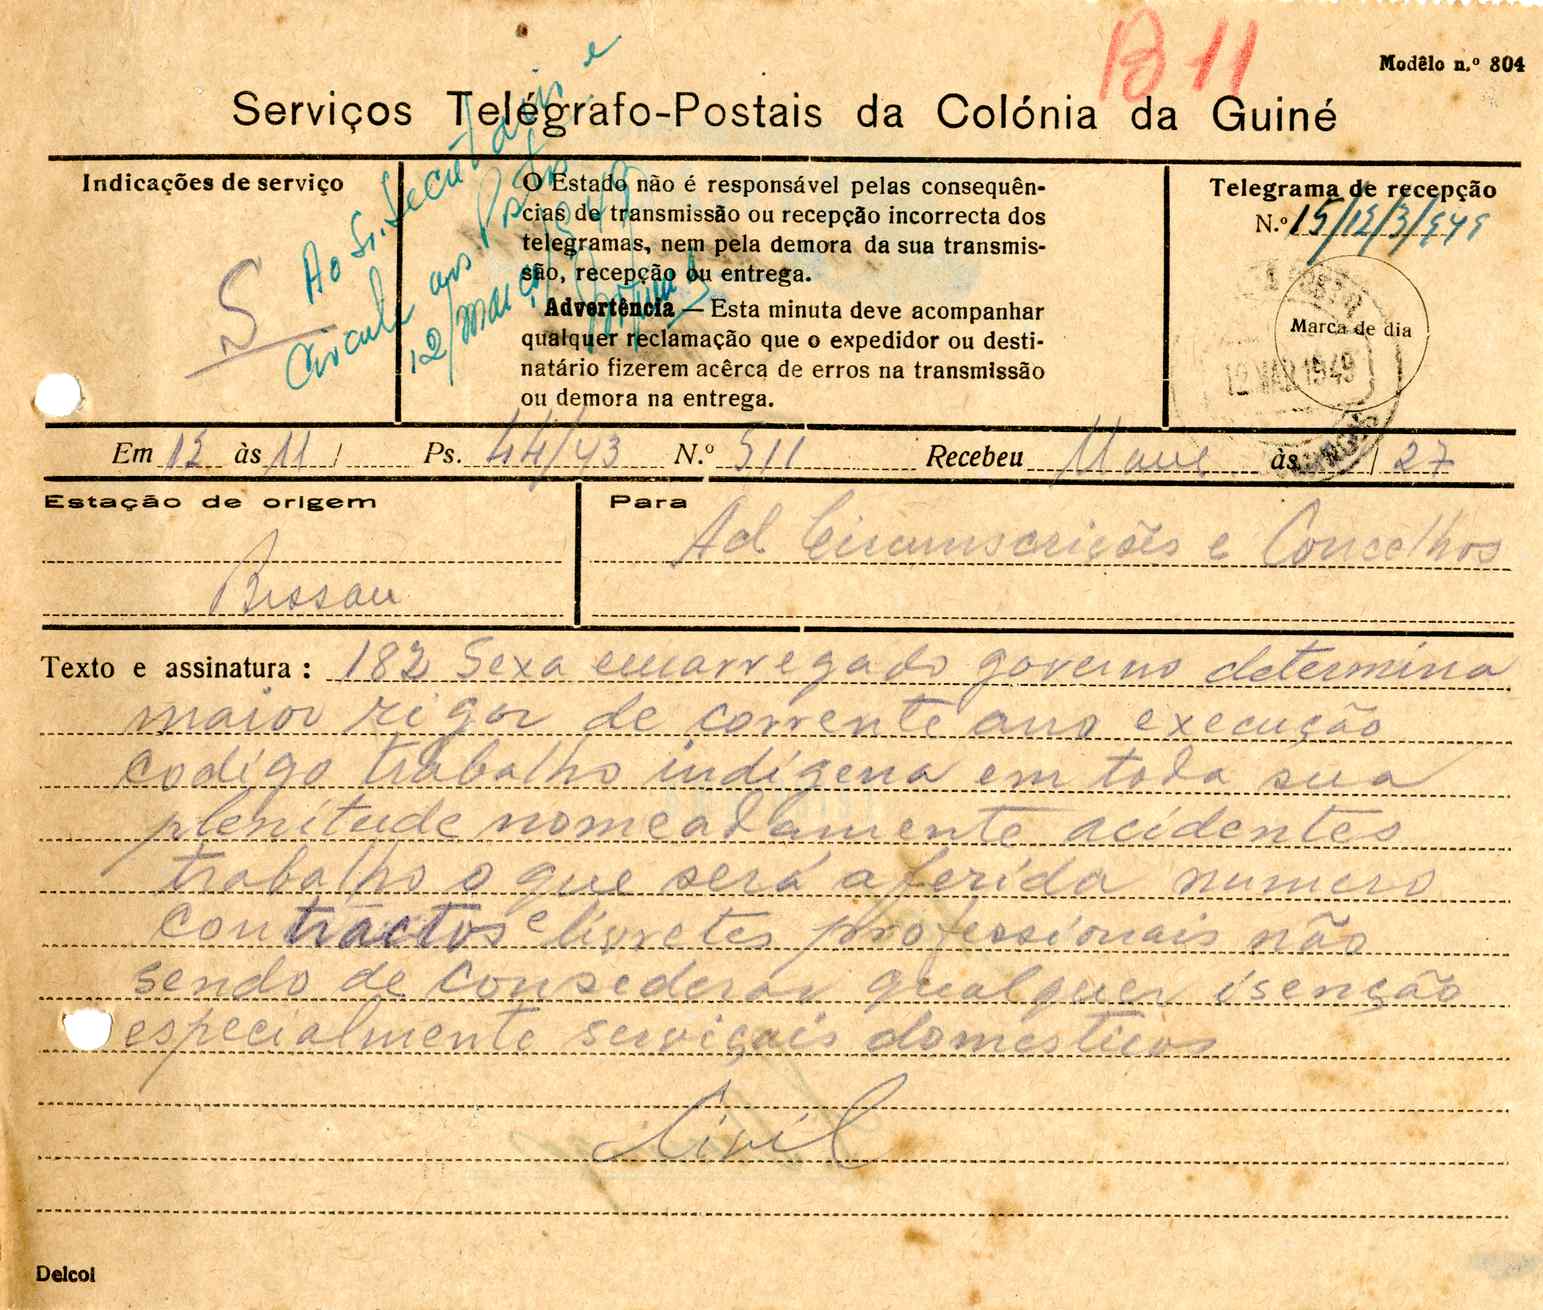 B 11
Modêlo n.º 804
Serviços Telégrafo-Postais da Colónia da Guiné
Indicações de serviço
S
Ao Sr. Secretário e
Circular aos Postos
12/Março/949
O Estado não é responsável pelas consequên-
cias de transmissão ou recepção incorrecta dos
telegramas, nem pela demora da sua transmis-
são, recepção ou entrega.
Advertência — Esta minuta deve acompanhar
qualquer reclamação que o expedidor ou desti-
natário fizerem acêrca de erros na transmissão
ou demora na entrega.
Telegrama de recepção
N.º 15/12/3/949
Marca de dia
12 MAR 1949
Em 12 às 11 / Ps. 44/43 N.º 511 Recebeu às / 27
Estação de origem
Bissau
Para
Ad Circunscrições e Concelhos
Texto e assinatura: 182 Sexa encarregado governo determina
maior rigor de corrente ano execução
codigo trabalho indígena em toda sua
plenitude nomeadamente acidentes
trabalho o que será aferida numero
contractos e livretes professionais não
sendo de consederar qualquer isenção
especialmente serviçais domesticos
Civil
Delcol